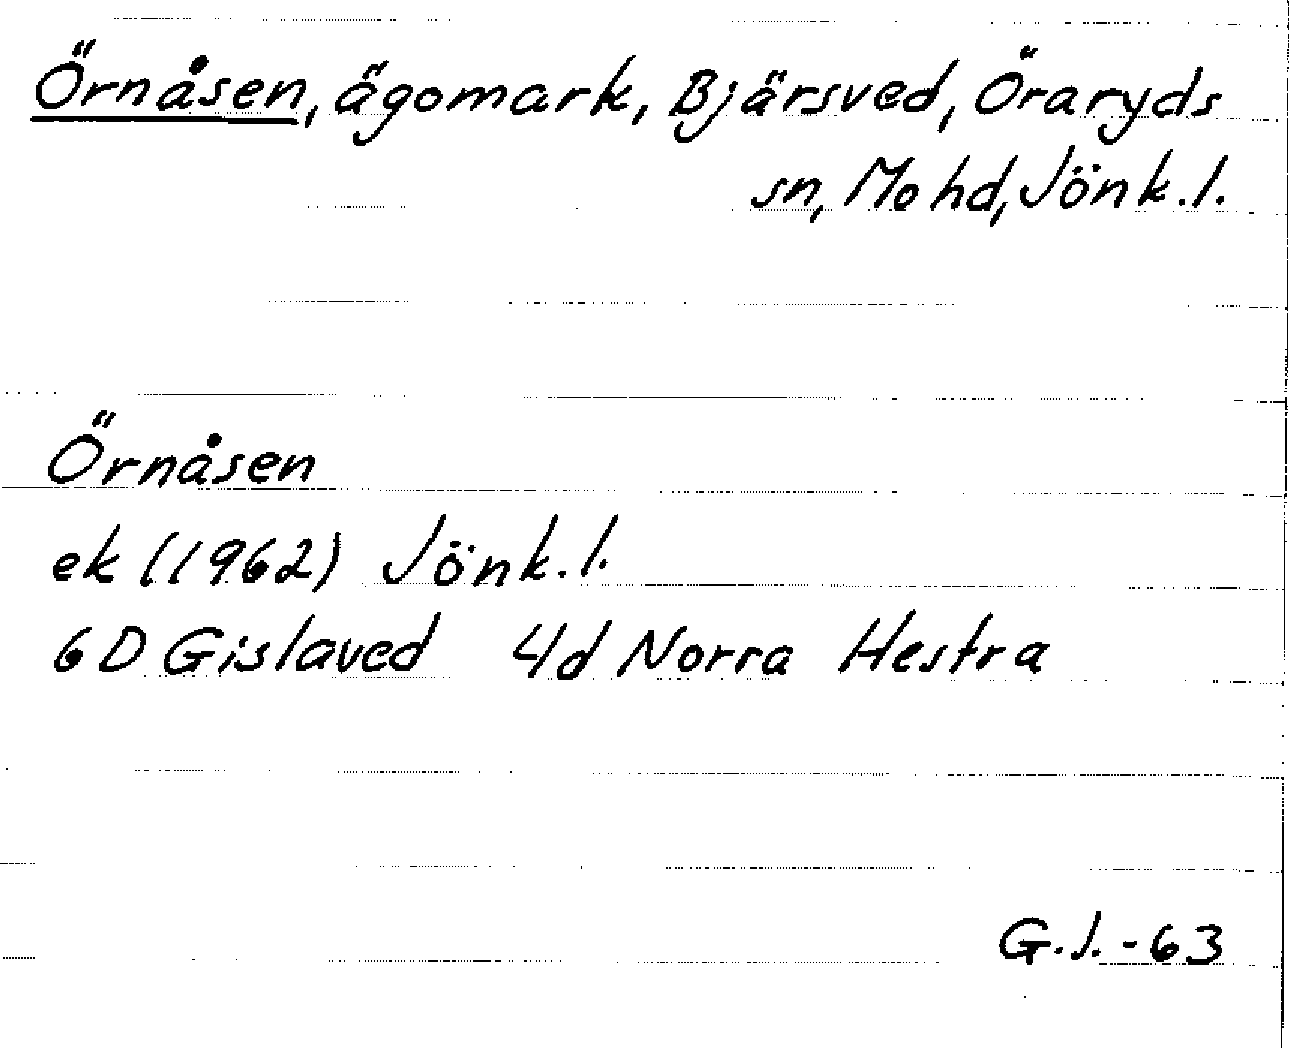 Örnåsen, ägomark, Bjärsved, Öraryds
sn, Mo hd, Jönk.l.
Örnåsen
ek (1962) Jönk.l.
6D Gislaved 4d Norra Hestra
G.J.-63